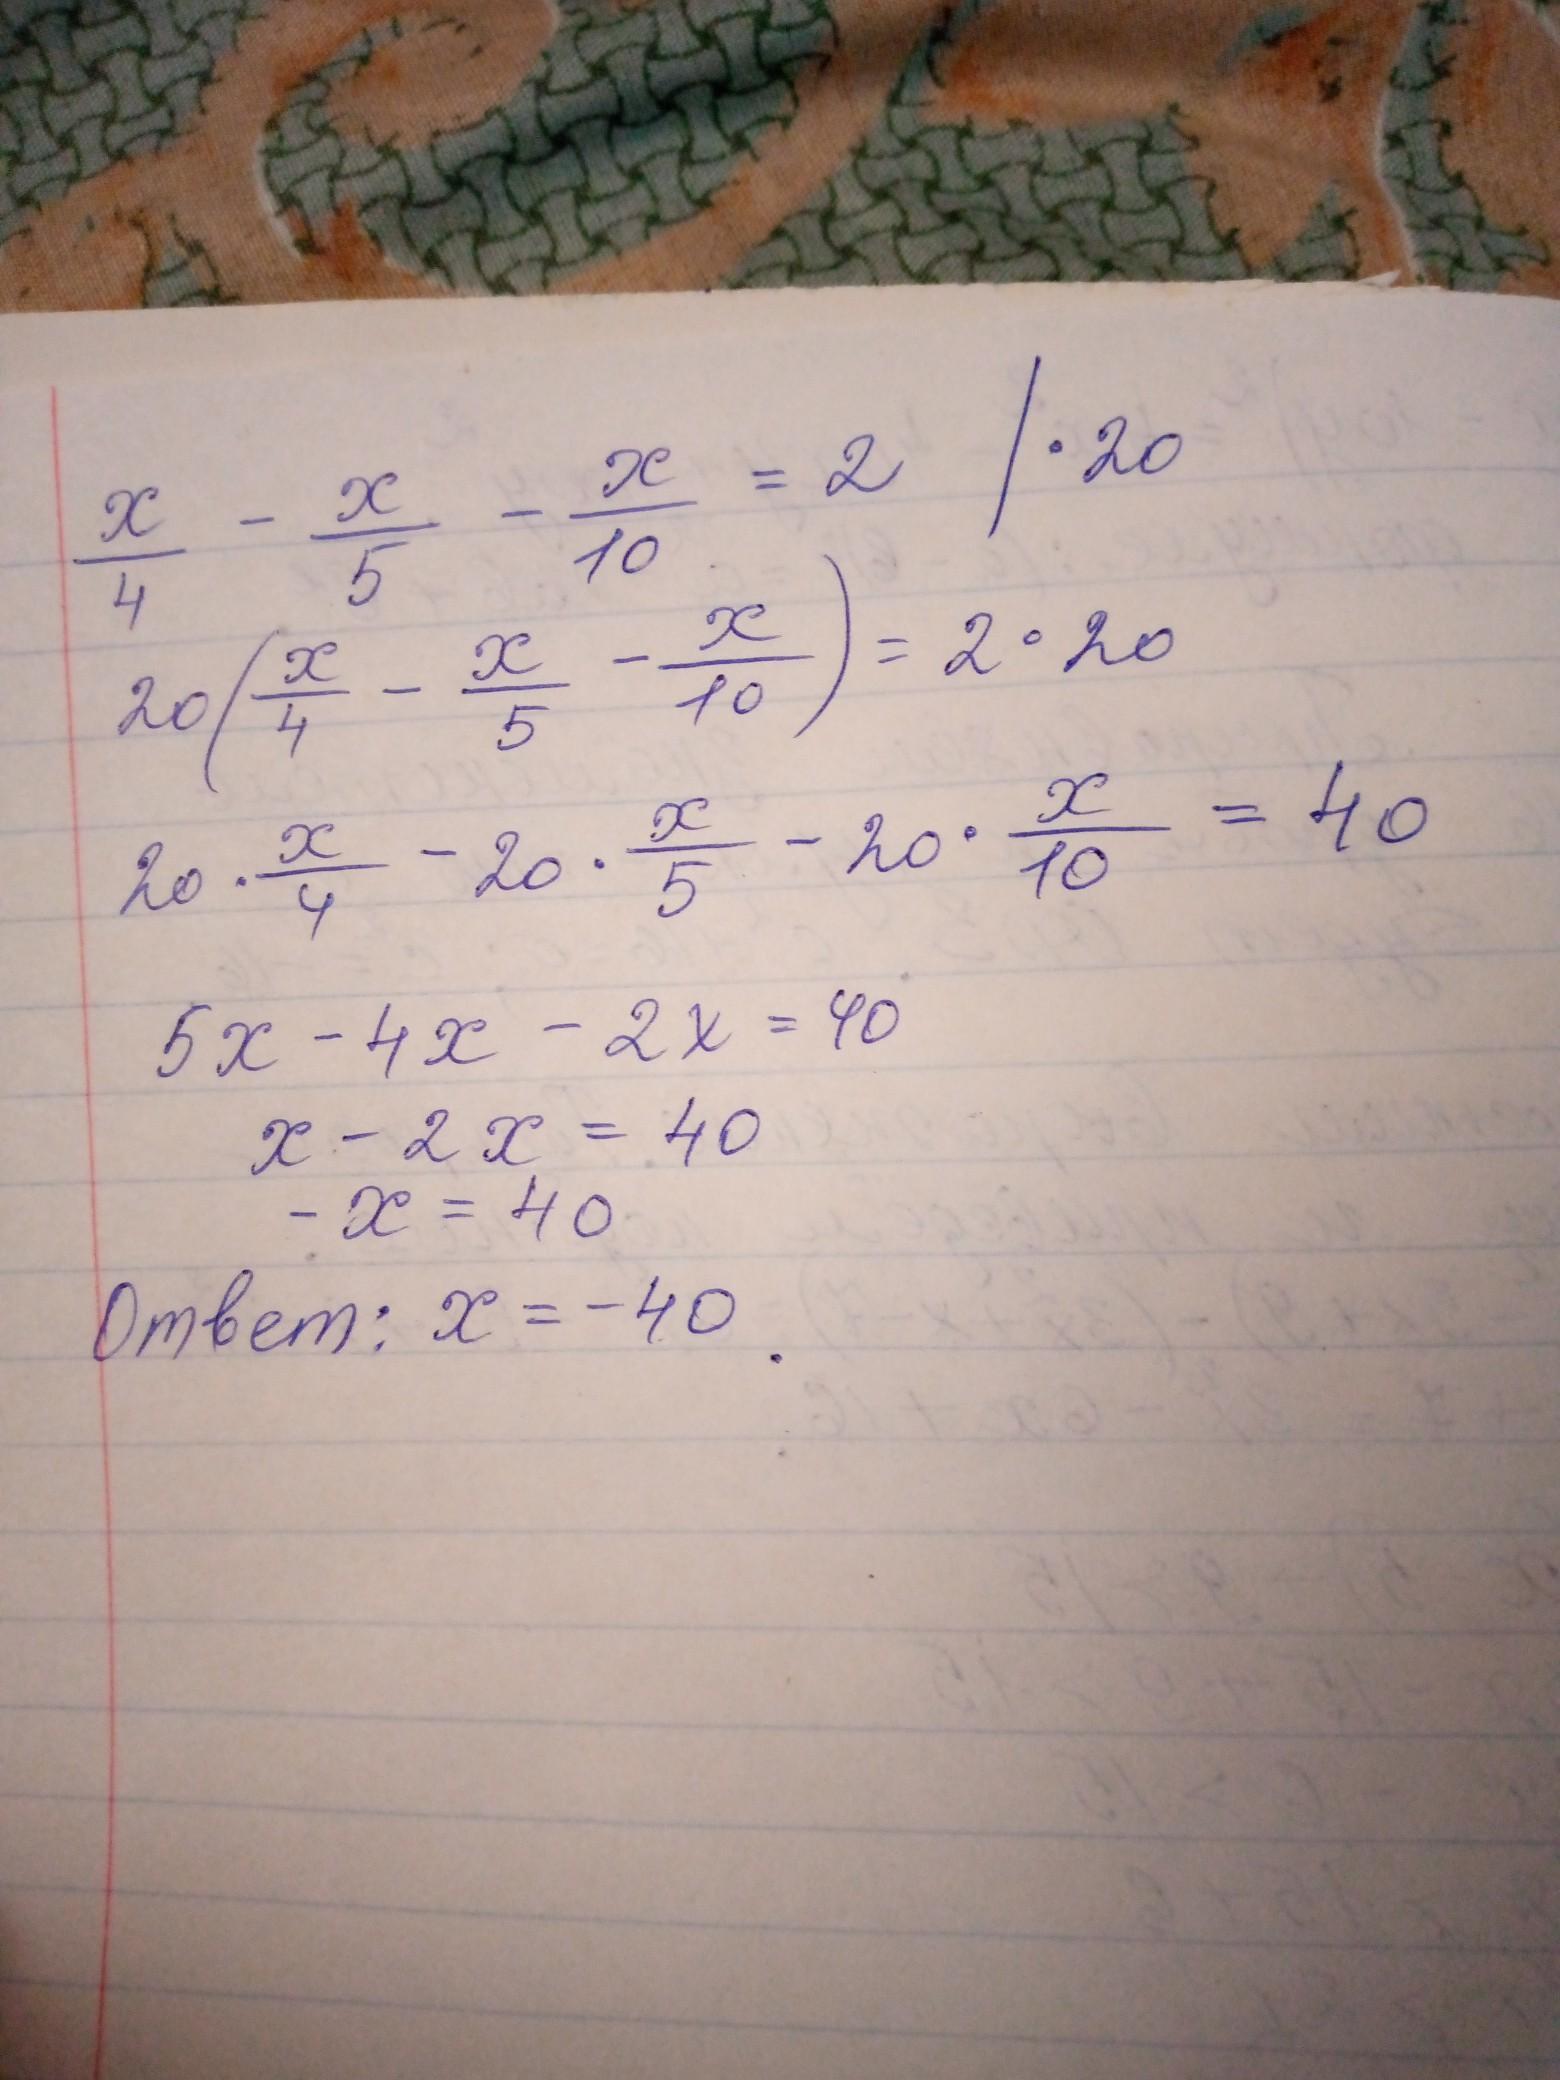 x/4 - x/5 - x/10 = 2 | · 20
20(x/4 - x/5 - x/10) = 2 · 20
20 · x/4 - 20 · x/5 - 20 · x/10 = 40
5x - 4x - 2x = 40
x - 2x = 40
- x = 40
Ответ: x = -40.